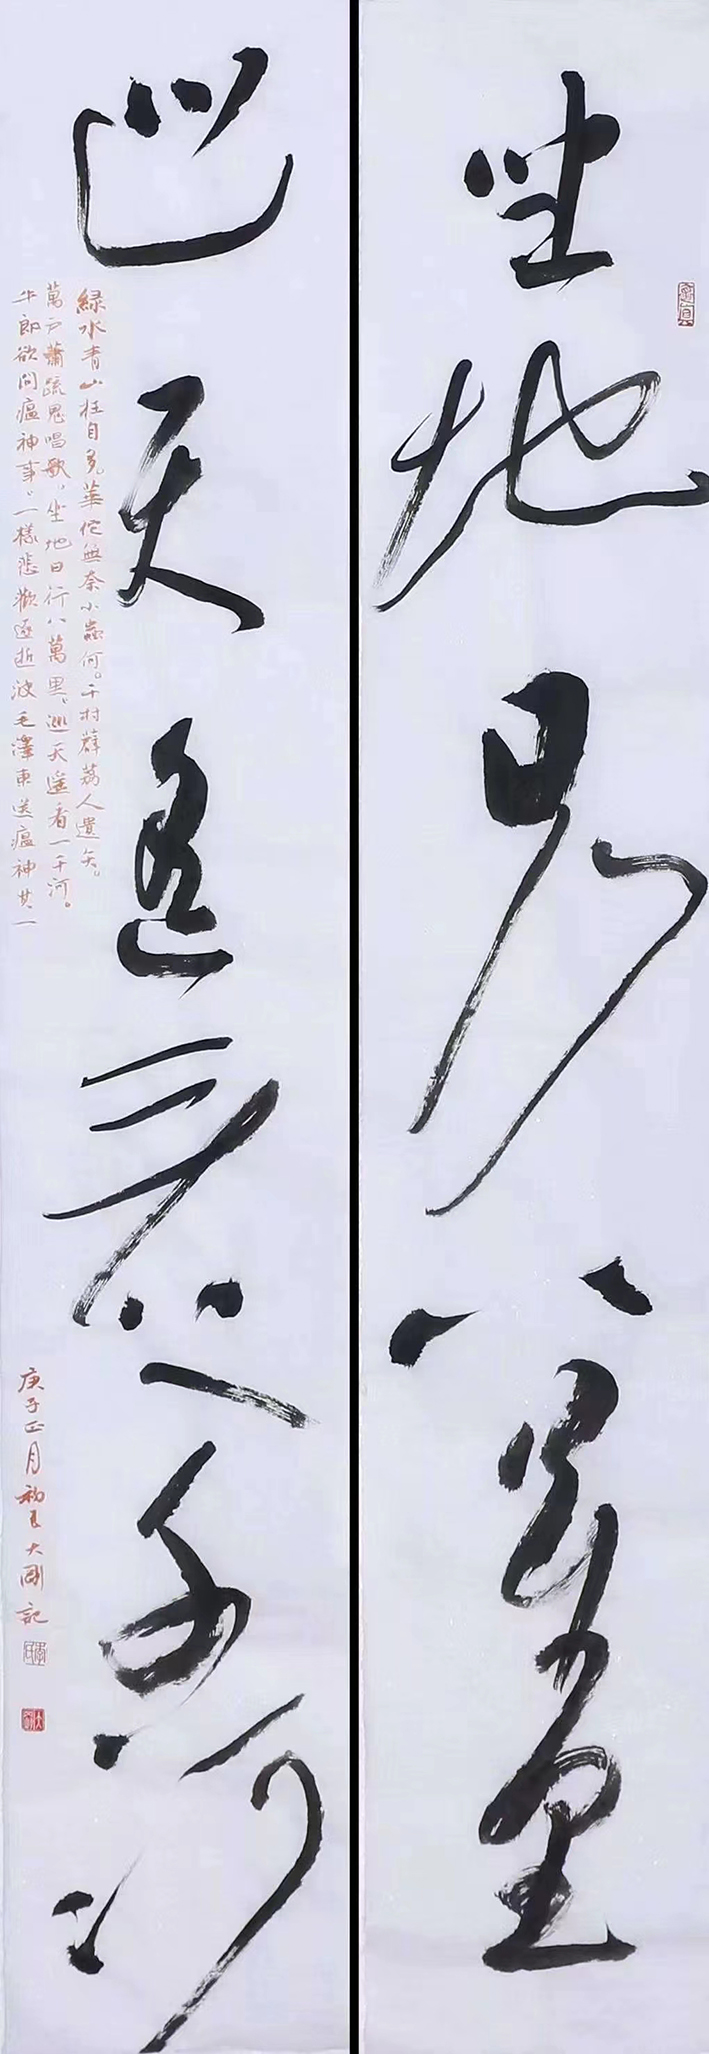 坐地日行八萬里
巡天遙看一千河
綠水青山枉自多。華佗無奈小蟲何。千村薜荔人遺矢。
萬戶蕭疏鬼唱歌。坐地日行八萬里。巡天遙看一千河。
牛郎欲問瘟神事。一樣悲歡逐逝波 毛澤東送瘟神其一
庚子正月初 大剛記